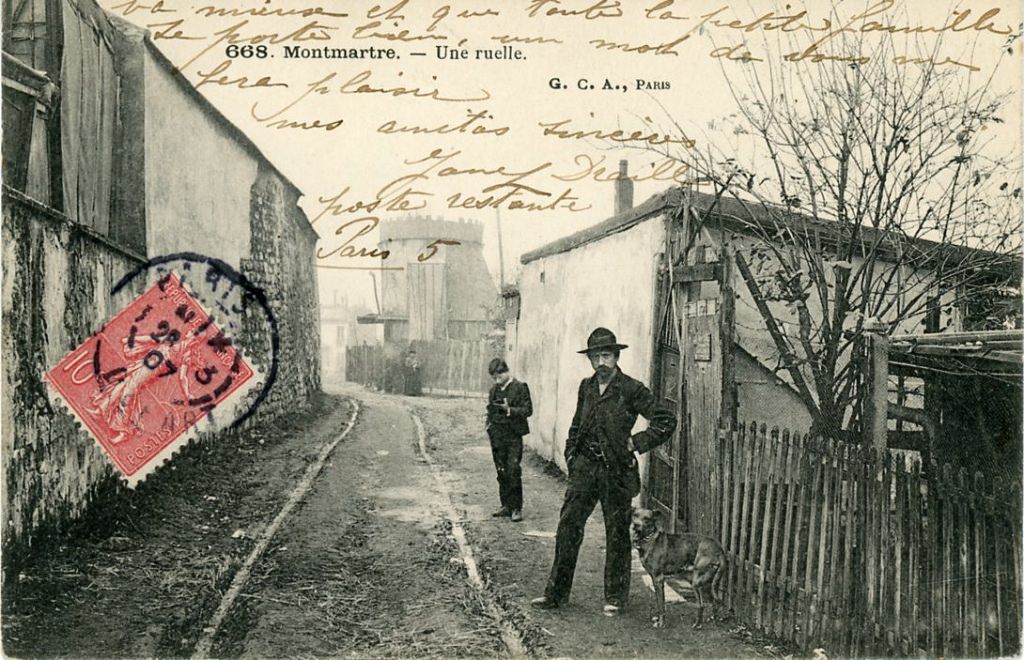 va mieux et que toute la petite famille
se porte bien, un mot de vous me
668. Montmartre. — Une ruelle.
fera plaisir
G. C. A., PARIS
mes amitiés sincères
poste restante
Paris 5
PARIS
28
07
10
POSTES